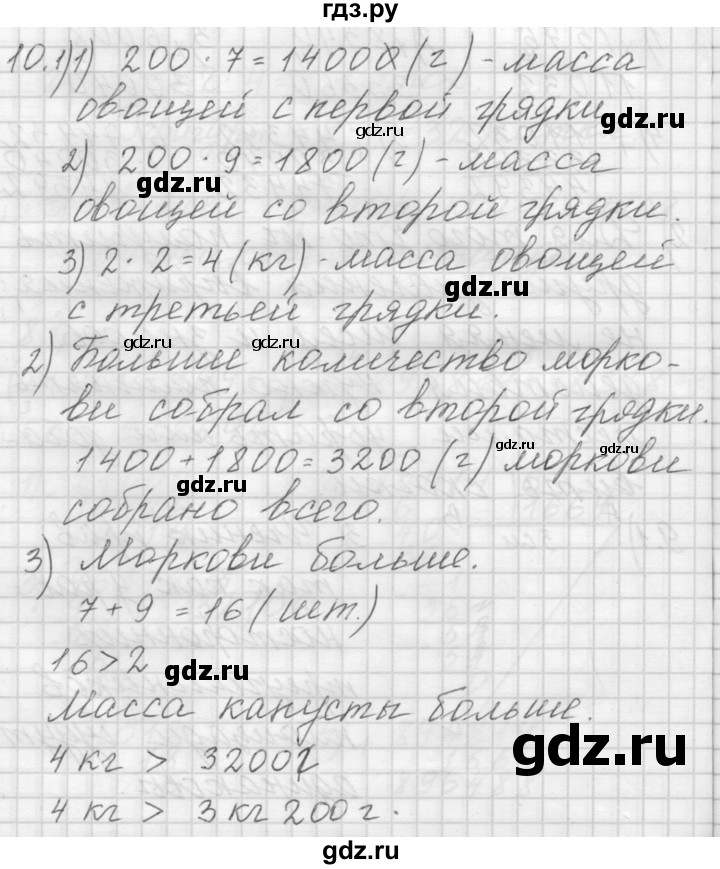 гдз.ру
10.1)1) 200 · 7 = 1400 (г) - масса
овощей с первой грядки
gdz.ru
gdz.ru
2) 200 · 9 = 1800 (г) - масса
gdz.ru
овощей со второй грядки.
3) 2 · 2 = 4 (кг) - масса овощей
gdz.ru
с третьей грядки.
gdz.ru
gdz.ru
2) Больши количество морко-
ви собрал со второй грядки.
gdz.ru
gdz.ru
1400 + 1800 = 3200 (г) моркови
gdz.ru
собрано всего.
3) Моркови больше.
7 + 9 = 16 (шт.)
16 > 2
gdz.ru
Масса капусты больше.
4 кг > 3200г
gdz.ru
4 кг > 3 кг 200 г.
gdz.ru